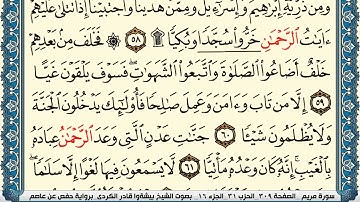 وَمِن ذُرِّيَّةِ إِبْرَٰهِيمَ وَإِسْرَٰٓءِيلَ وَمِمَّنْ هَدَيْنَا وَٱجْتَبَيْنَآ إِذَا تُتْلَىٰ عَلَيْهِمْ
ءَايَٰتُ ٱلرَّحْمَٰنِ خَرُّوا۟ سُجَّدًا وَبُكِيًّا ۩ ٥٨ ۞ فَخَلَفَ مِنۢ بَعْدِهِمْ
خَلْفٌ أَضَاعُوا۟ ٱلصَّلَوٰةَ وَٱتَّبَعُوا۟ ٱلشَّهَوَٰتِ فَسَوْفَ يَلْقَوْنَ غَيًّا
٥٩ إِلَّا مَن تَابَ وَءَامَنَ وَعَمِلَ صَٰلِحًا فَأُو۟لَٰٓئِكَ يَدْخُلُونَ ٱلْجَنَّةَ
وَلَا يُظْلَمُونَ شَيْـًٔا ٦٠ جَنَّٰتِ عَدْنٍ ٱلَّتِى وَعَدَ ٱلرَّحْمَٰنُ عِبَادَهُۥ
بِٱلْغَيْبِ إِنَّهُۥ كَانَ وَعْدُهُۥ مَأْتِيًّا ٦١ لَّا يَسْمَعُونَ فِيهَا لَغْوًا إِلَّا سَلَٰمًا
سورة مريم الصفحة ٣٠٩ الحزب ٣١ الجزء ١٦ بصوت الشيخ بيشةوا قادر الكردى برواية حفص عن عاصم